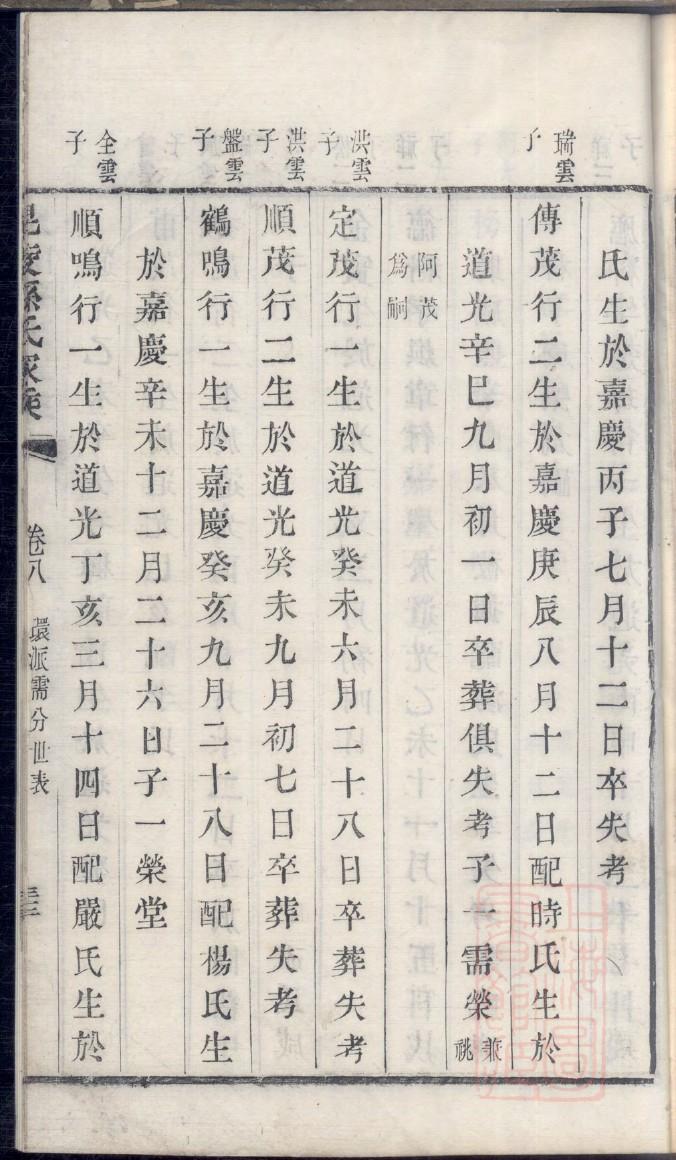 氏生於嘉慶丙子七月十二日卒失考
瑞雲子
傳茂行二生於嘉慶庚辰八月十二日配時氏生於
道光辛巳九月初一日卒葬俱失考子一需榮兼祧
阿茂為嗣
洪雲子
定茂行一生於道光癸未六月二十八日卒葬失考
洪雲子
順茂行二生於道光癸未九月初七日卒葬失考
盤雲子
鶴鳴行一生於嘉慶癸亥九月二十八日配楊氏生
於嘉慶辛未十二月二十六日子一榮堂
全雲子
順鳴行一生於道光丁亥三月十四日配嚴氏生於
毘陵孫氏家乘 卷八 環派需分世表 三三